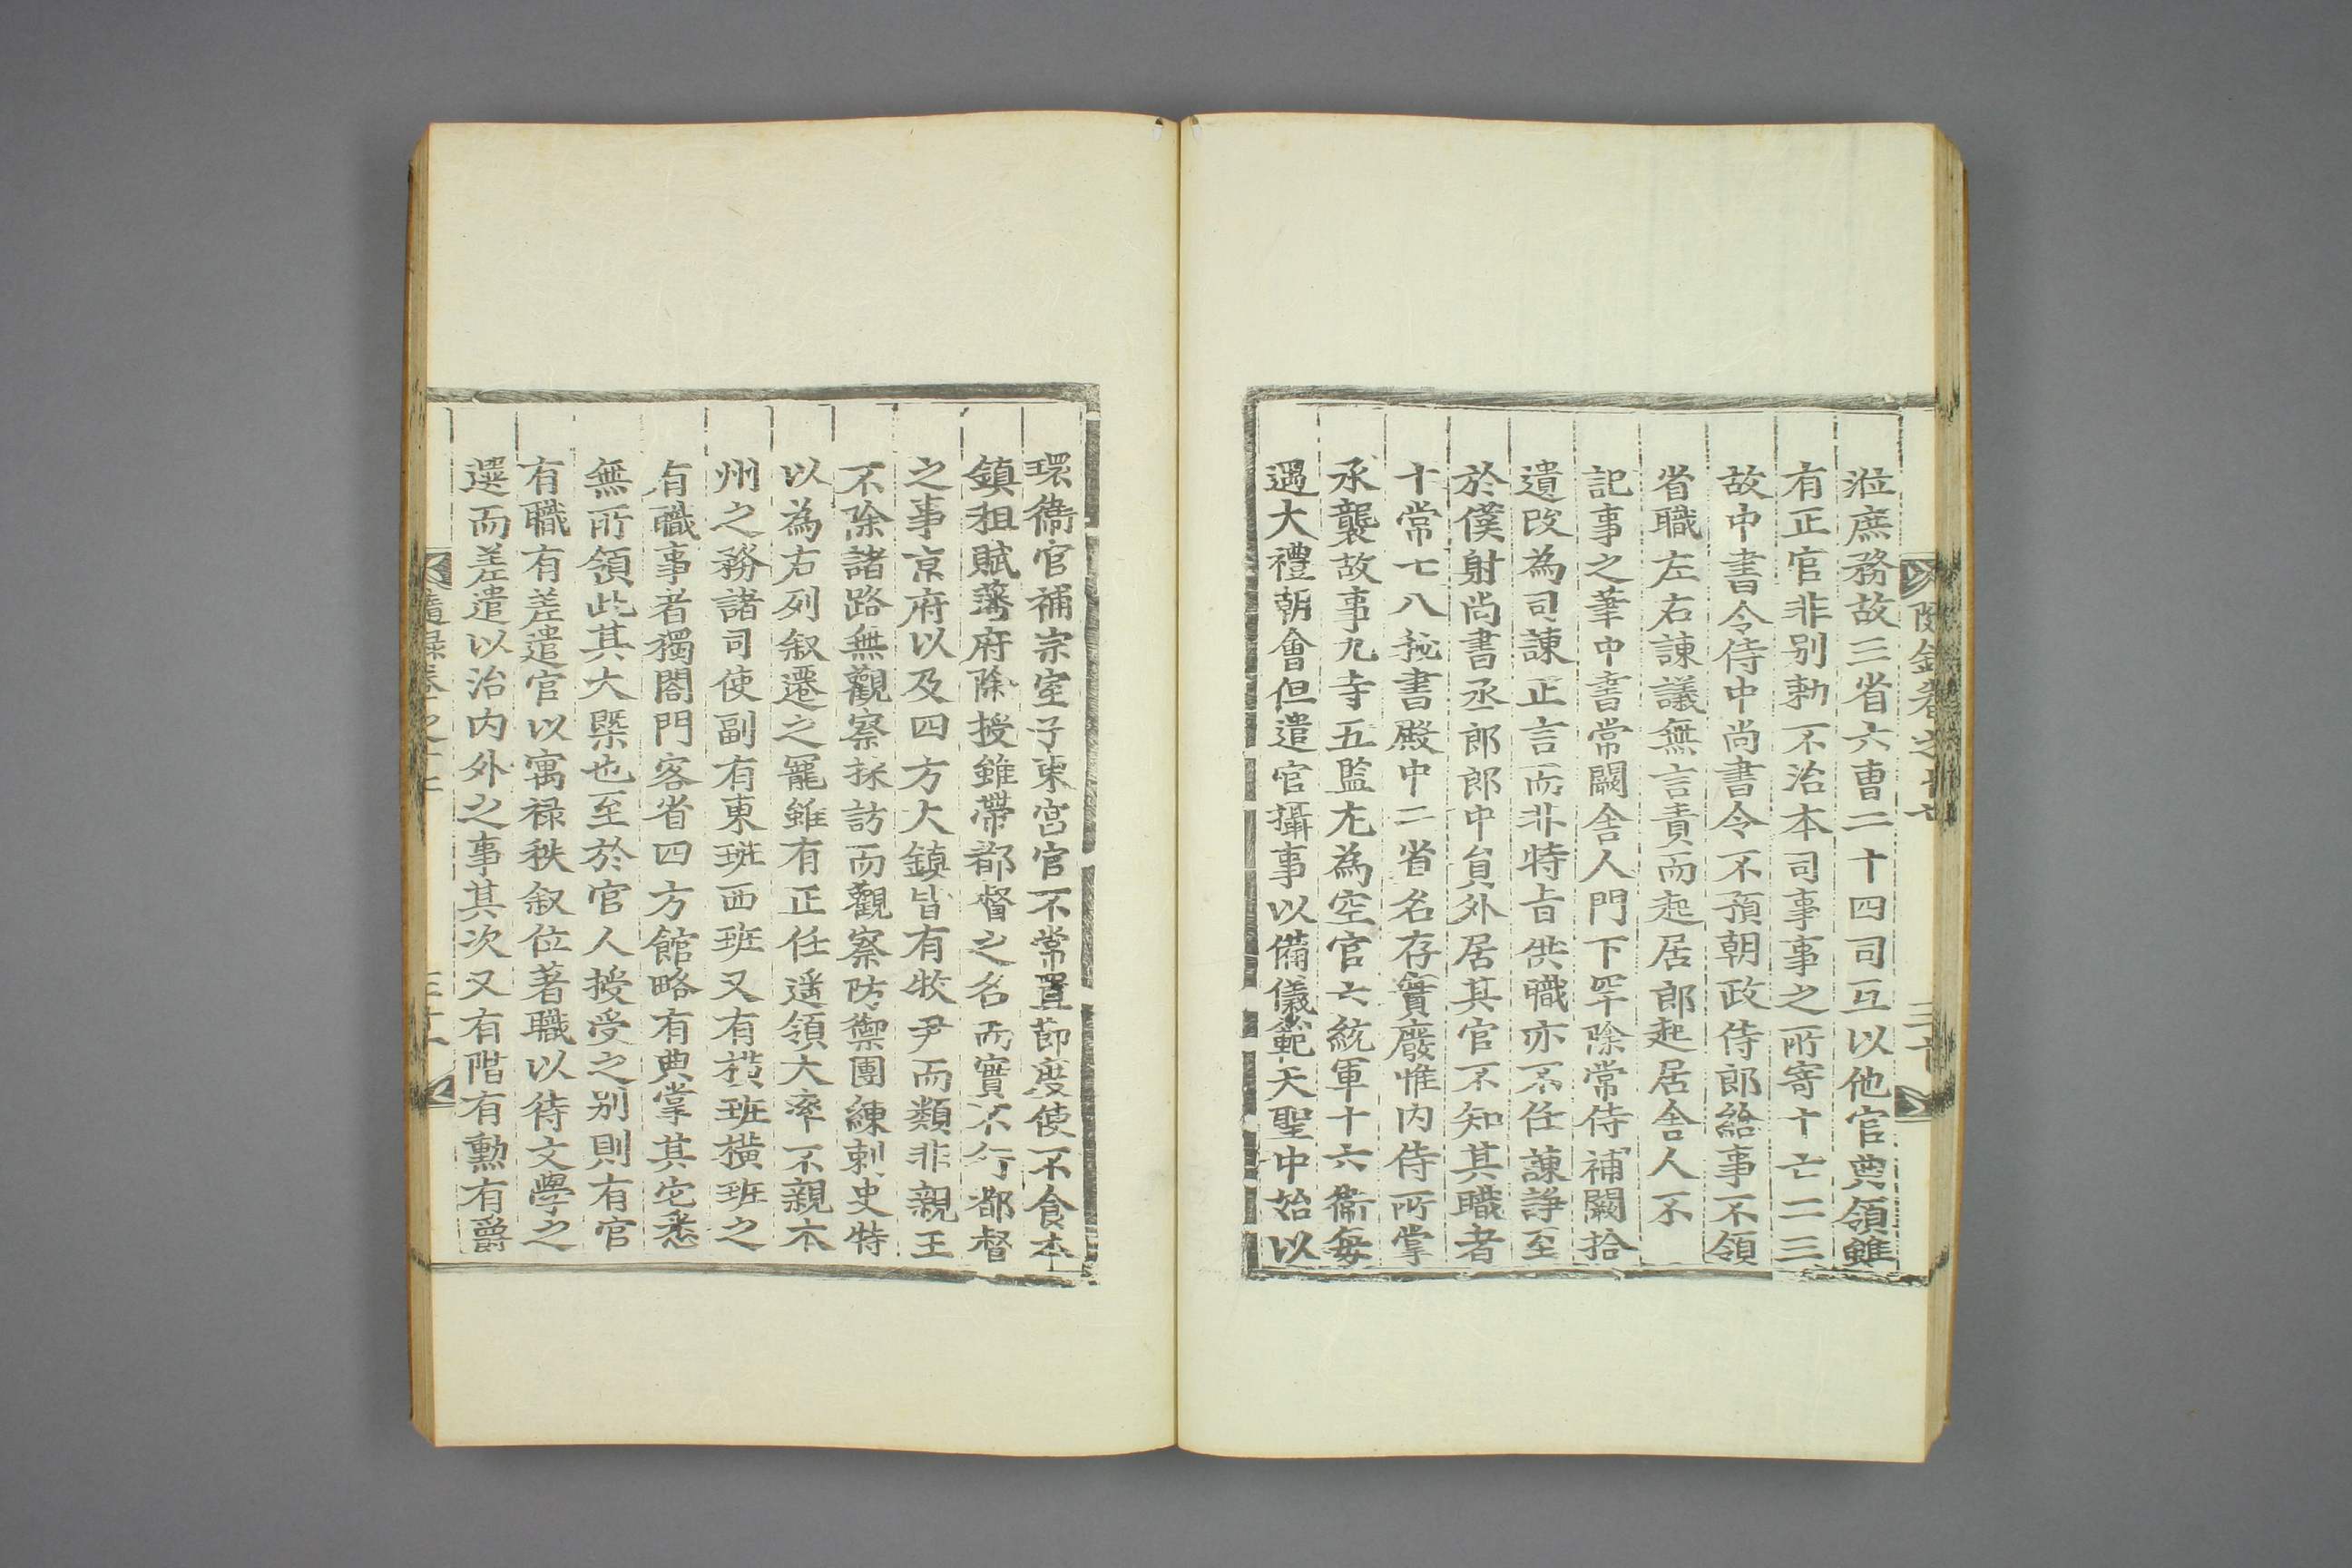 涖庶務故三省六曹二十四司互以他官典領雖
有正官非别勅不治本司事事之所寄十亡二三
故中書令侍中尚書令不預朝政侍郎給事不領
省職左右諫議無言責而起居郎起居舍人不
記事之華中書常闕舍人門下罕除常侍補闕拾
遺改為司諫正言而非特旨供職亦不任諫諍至
於僕射尚書丞郎郎中員外居其官不知其職者
十常七八秘書殿中二省名存實廢惟内侍所掌
承襲故事九寺五監尢為空官六統軍十六衛每
遇大禮朝會但遣官攝事以備儀範天聖中始以
環衛官補宗室子東宮官不常置節度使不食本
鎮租賦藩府除授雖帶都督之名而實不行都督
之事京府以及四方大鎮皆有牧尹而類非親王
不除諸路無觀察採訪而觀察防禦團練刺史特
以為右列叙遷之寵雖有正任遥領大率不親本
州之務諸司使副有東班西班又有横班横班之
有職事者獨閤門客省四方館略有典掌其它悉
無所領此其大槩也至於官人授受之别則有官
有職有差遣官以寓禄秩叙位著職以待文學之
選而差遣以治内外之事其次又有階有勳有爵